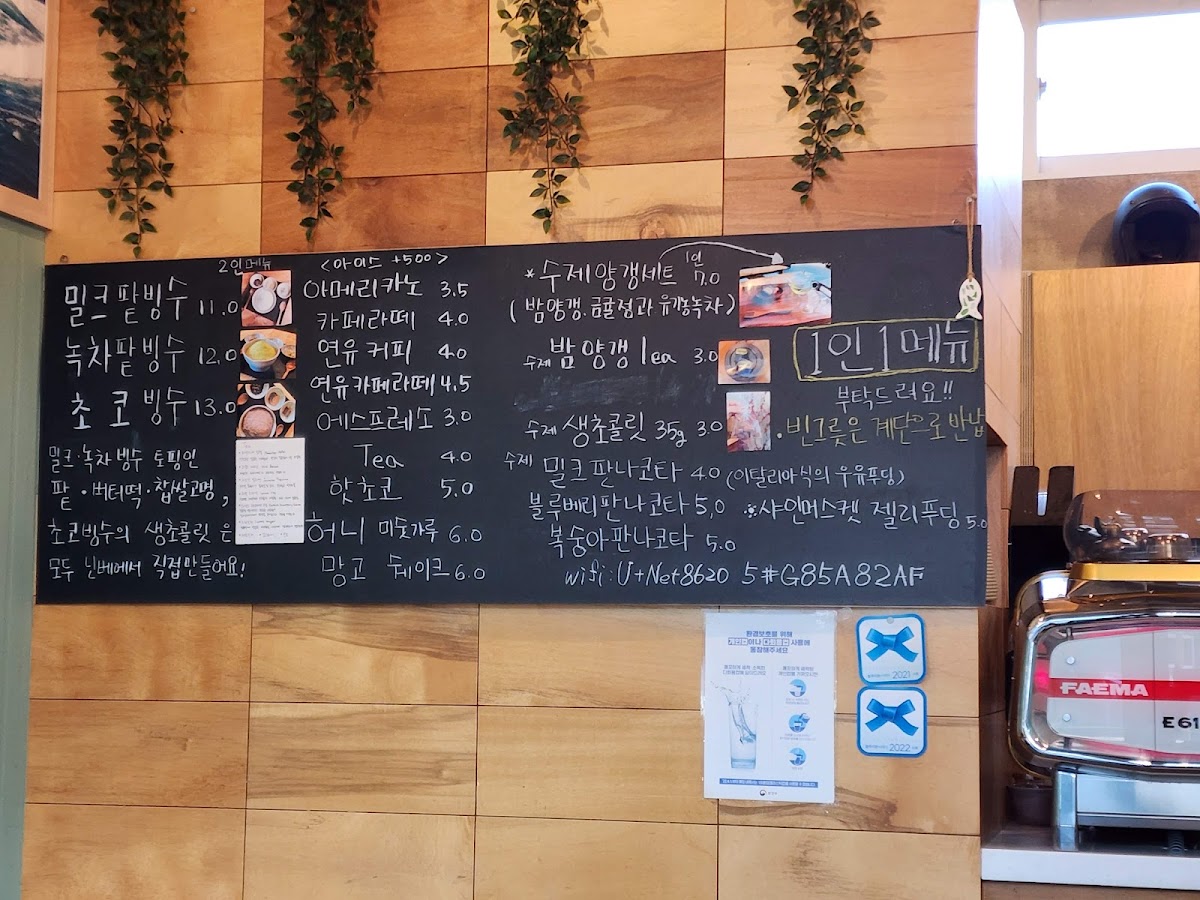 2인메뉴
밀크팥빙수 11.0
녹차팥빙수 12.0
초코빙수 13.0
밀크·녹차빙수 토핑인
팥·버터떡·찹쌀고명,
초코빙수의 생초콜릿은
모두 닌베에서 직접만들어요!
<아이스 +500>
아메리카노 3.5
카페라떼 4.0
연유커피 4.0
연유카페라떼 4.5
에스프레소 3.0
Tea 4.0
핫쵸코 5.0
허니 미숫가루 6.0
망고 쉐이크 6.0
*수제양갱세트 1인 7.0
수제 밤양갱 1ea 3.0
수제 생초콜릿 35g 3.0
수제 밀크판나코타 4.0 (이탈리아식의 우유푸딩)
블루베리판나코타 5.0
※샤인머스켓 젤리푸딩 5.0
복숭아판나코타 5.0
wifi: U+Net8620 5#G85A82AF
1인 1메뉴
부탁드려요!!
·빈그릇은 계단으로 반납
환경보호를 위해
개인컵이나 다회용컵 사용에
동참해주세요
2021
2022
FAEMA
E61